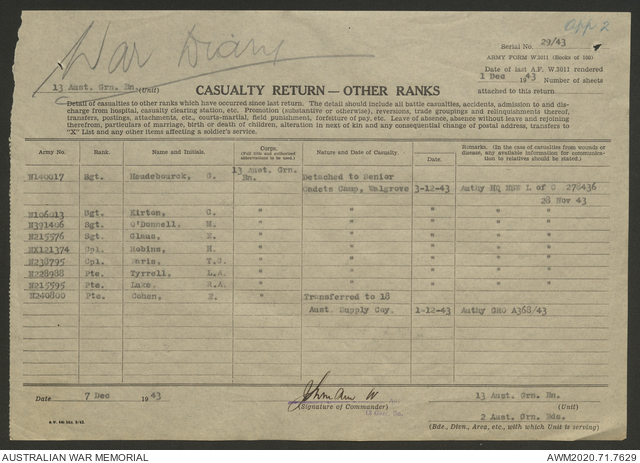 War Diary
App 2
Serial No. 29/43
ARMY FORM W.3011 (Books of 100)
Date of last A.F. W.3011 rendered
1 Dec 1943 Number of sheets
attached to this return
13 Aust. Grn. Bn. (Unit)
CASUALTY RETURN — OTHER RANKS
Detail of casualties to other ranks which have occurred since last return. The detail should include all battle casualties, accidents, admission to and dis-
charge from hospital, casualty clearing station, etc. Promotion (substantive or otherwise), reversions, trade groupings and relinquishments thereof,
transfers, postings, attachments, etc., courts-martial, field punishment, forfeiture of pay, etc. Leave of absence, absence without leave and rejoining
therefrom, particulars of marriage, birth or death of children, alteration in next of kin and any consequential change of postal address, transfers to
"X" List and any other items affecting a soldier's service.
Army No. Rank. Name and Initials. Corps. (Full title and authorised abbreviations to be used.) Nature and Date of Casualty. Date. Remarks. (In the case of casualties from wounds or disease, any available information for communication to relatives should be stated.)
N140017 Sgt. G. 13 Aust. Grn. Bn. Detached to Senior
Cadets Camp, Walgrove 3-12-43 Authy HQ NSW L of C 278436
28 Nov 43
N106013 Sgt. Kirton, G. " " " "
N391406 Sgt. O'Donnell, M. " " " "
N215576 Sgt. " " " "
NX121374 Cpl. Robins, H. " " " "
N238795 Cpl. T.G. " " " "
N228988 Pte. Tyrrell, L.A. " " " "
N215595 Pte. Luke, R.A. " " " "
N240800 Pte. Cohen, E. " Transferred to 18
Aust. Supply Coy. 1-12-43 Authy GRO A368/43
Date 7 Dec 1943
(Signature of Commander)
13 Aust. Grn. Bn.
(Unit)
2 Aust. Grn. Bde.
(Bde., Divn., Area, etc., with which Unit is serving)
AUSTRALIAN WAR MEMORIAL
AWM2020.71.7629